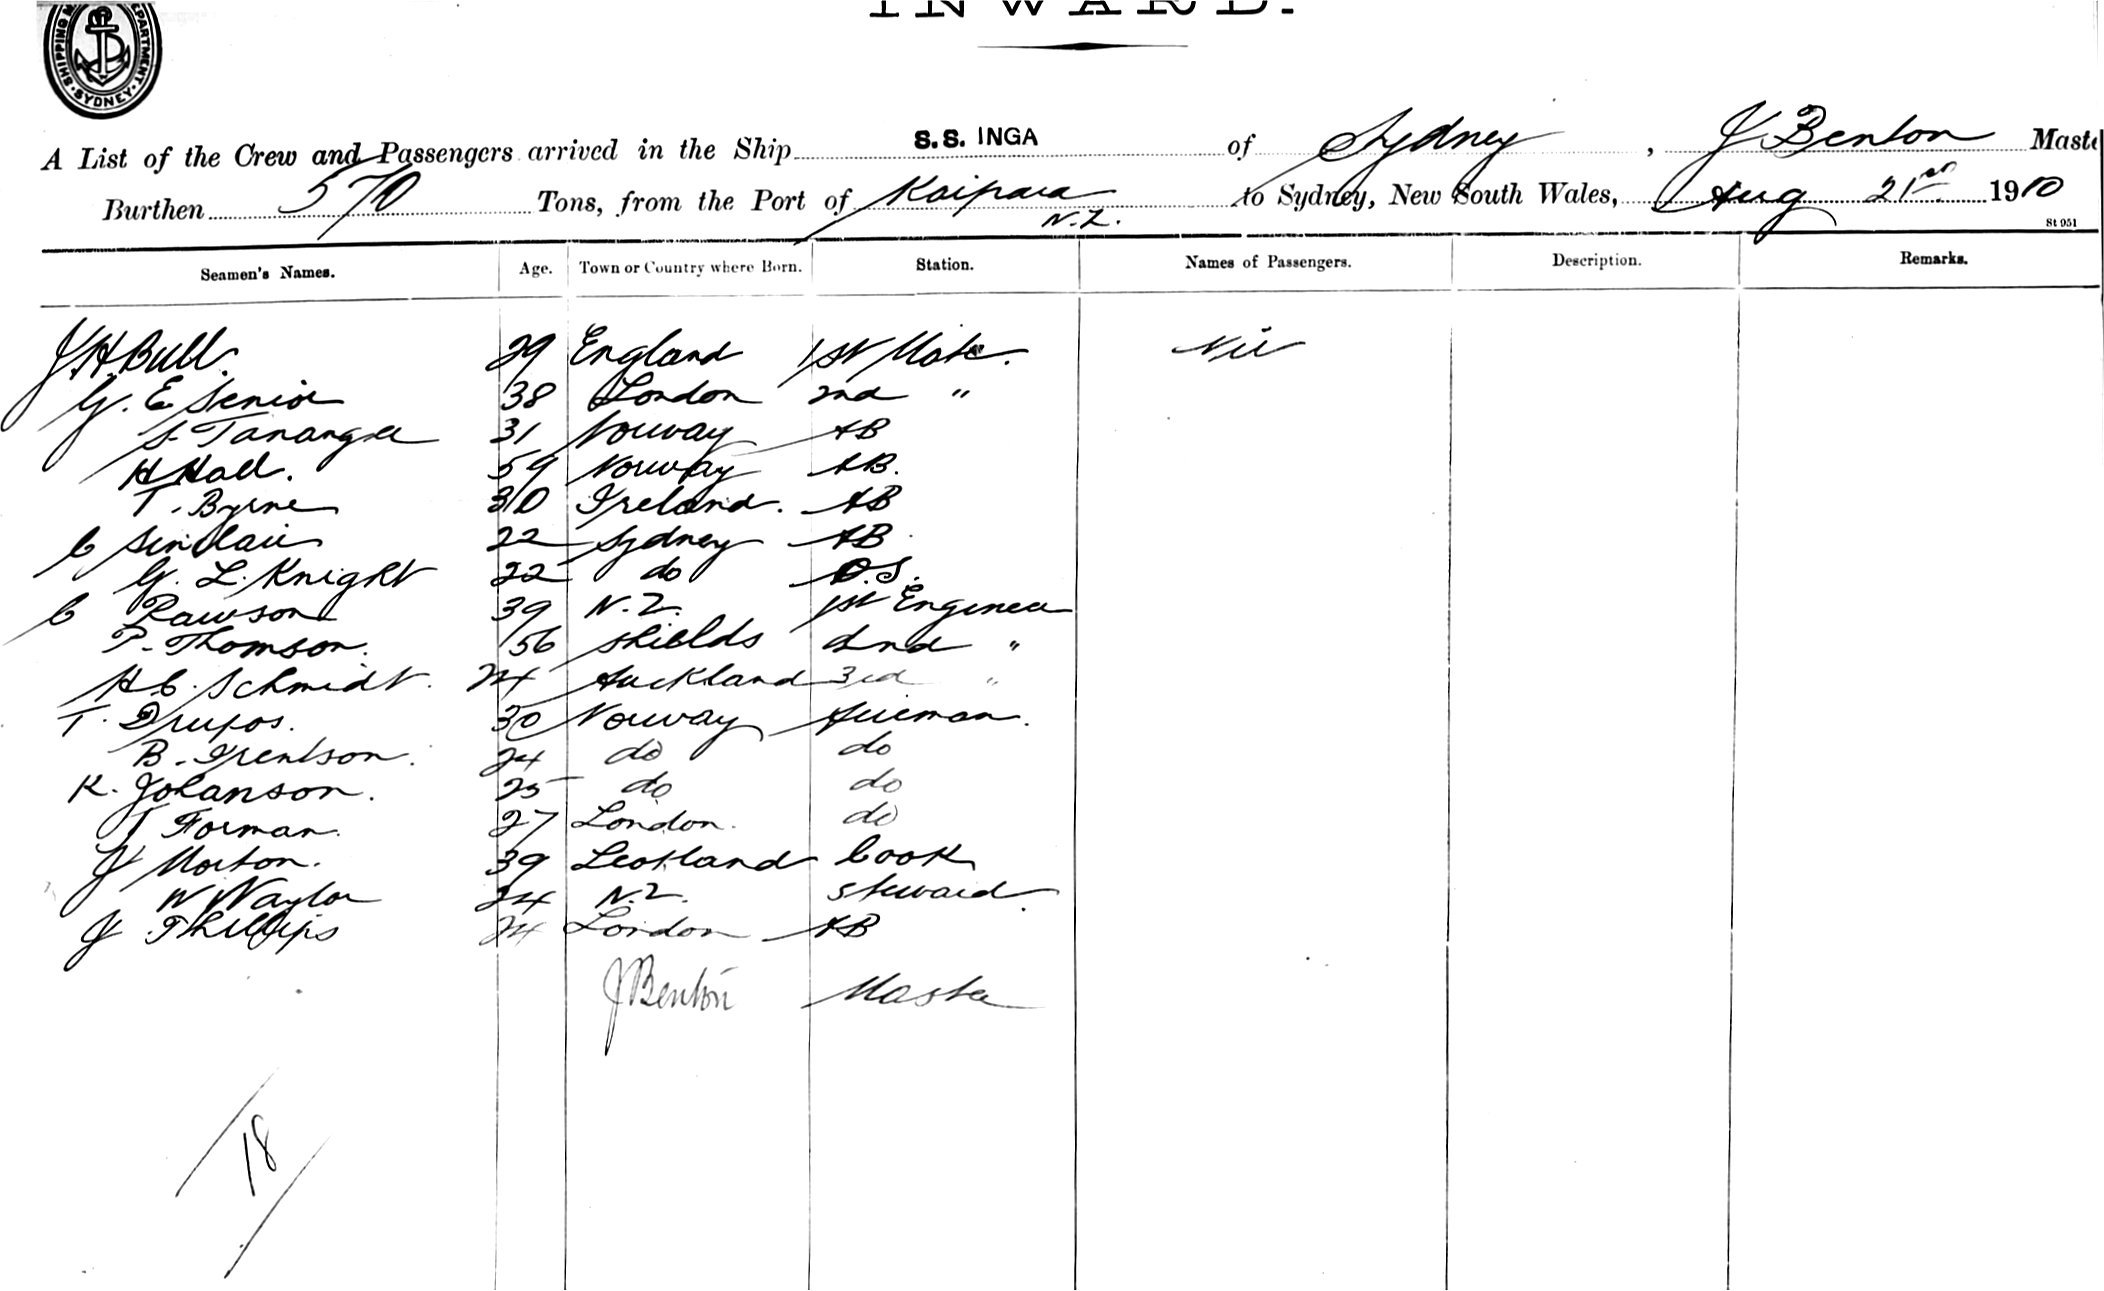 INWARD.
SHIPPING DEPARTMENT SYDNEY
A List of the Crew and Passengers arrived in the Ship S.S. INGA of Sydney, J Benton Maste
Burthen 570 Tons, from the Port of Kaipara N.Z. to Sydney, New South Wales, Aug 21st 1910
St 951
Seamen's Names. Age. Town or Country where Born. Station. Names of Passengers. Description. Remarks.
J. H. Bull. 29 England 1st Mate. Nil
G. E Senior 38 London 2nd "
S. Tananger 31 Norway AB
H Hall. 59 Norway AB.
T. Byrne 30 Ireland. AB
C Sinclair 22 Sydney AB
G. L. Knight 22 do O.S.
C Rawson 39 N.Z. 1st Engineer
P. Thomson. 56 Shields 2nd "
H C. Schmidt. 24 Auckland 3rd "
T. 30 Norway Fireman.
B. 24 do do
K. Johanson. 25 do do
J Forman. 27 London. do
J Morton. 39 Scotland Cook
W Naylor 24 N.Z. Steward.
J Phillips 24 London AB
J Benton Master
18